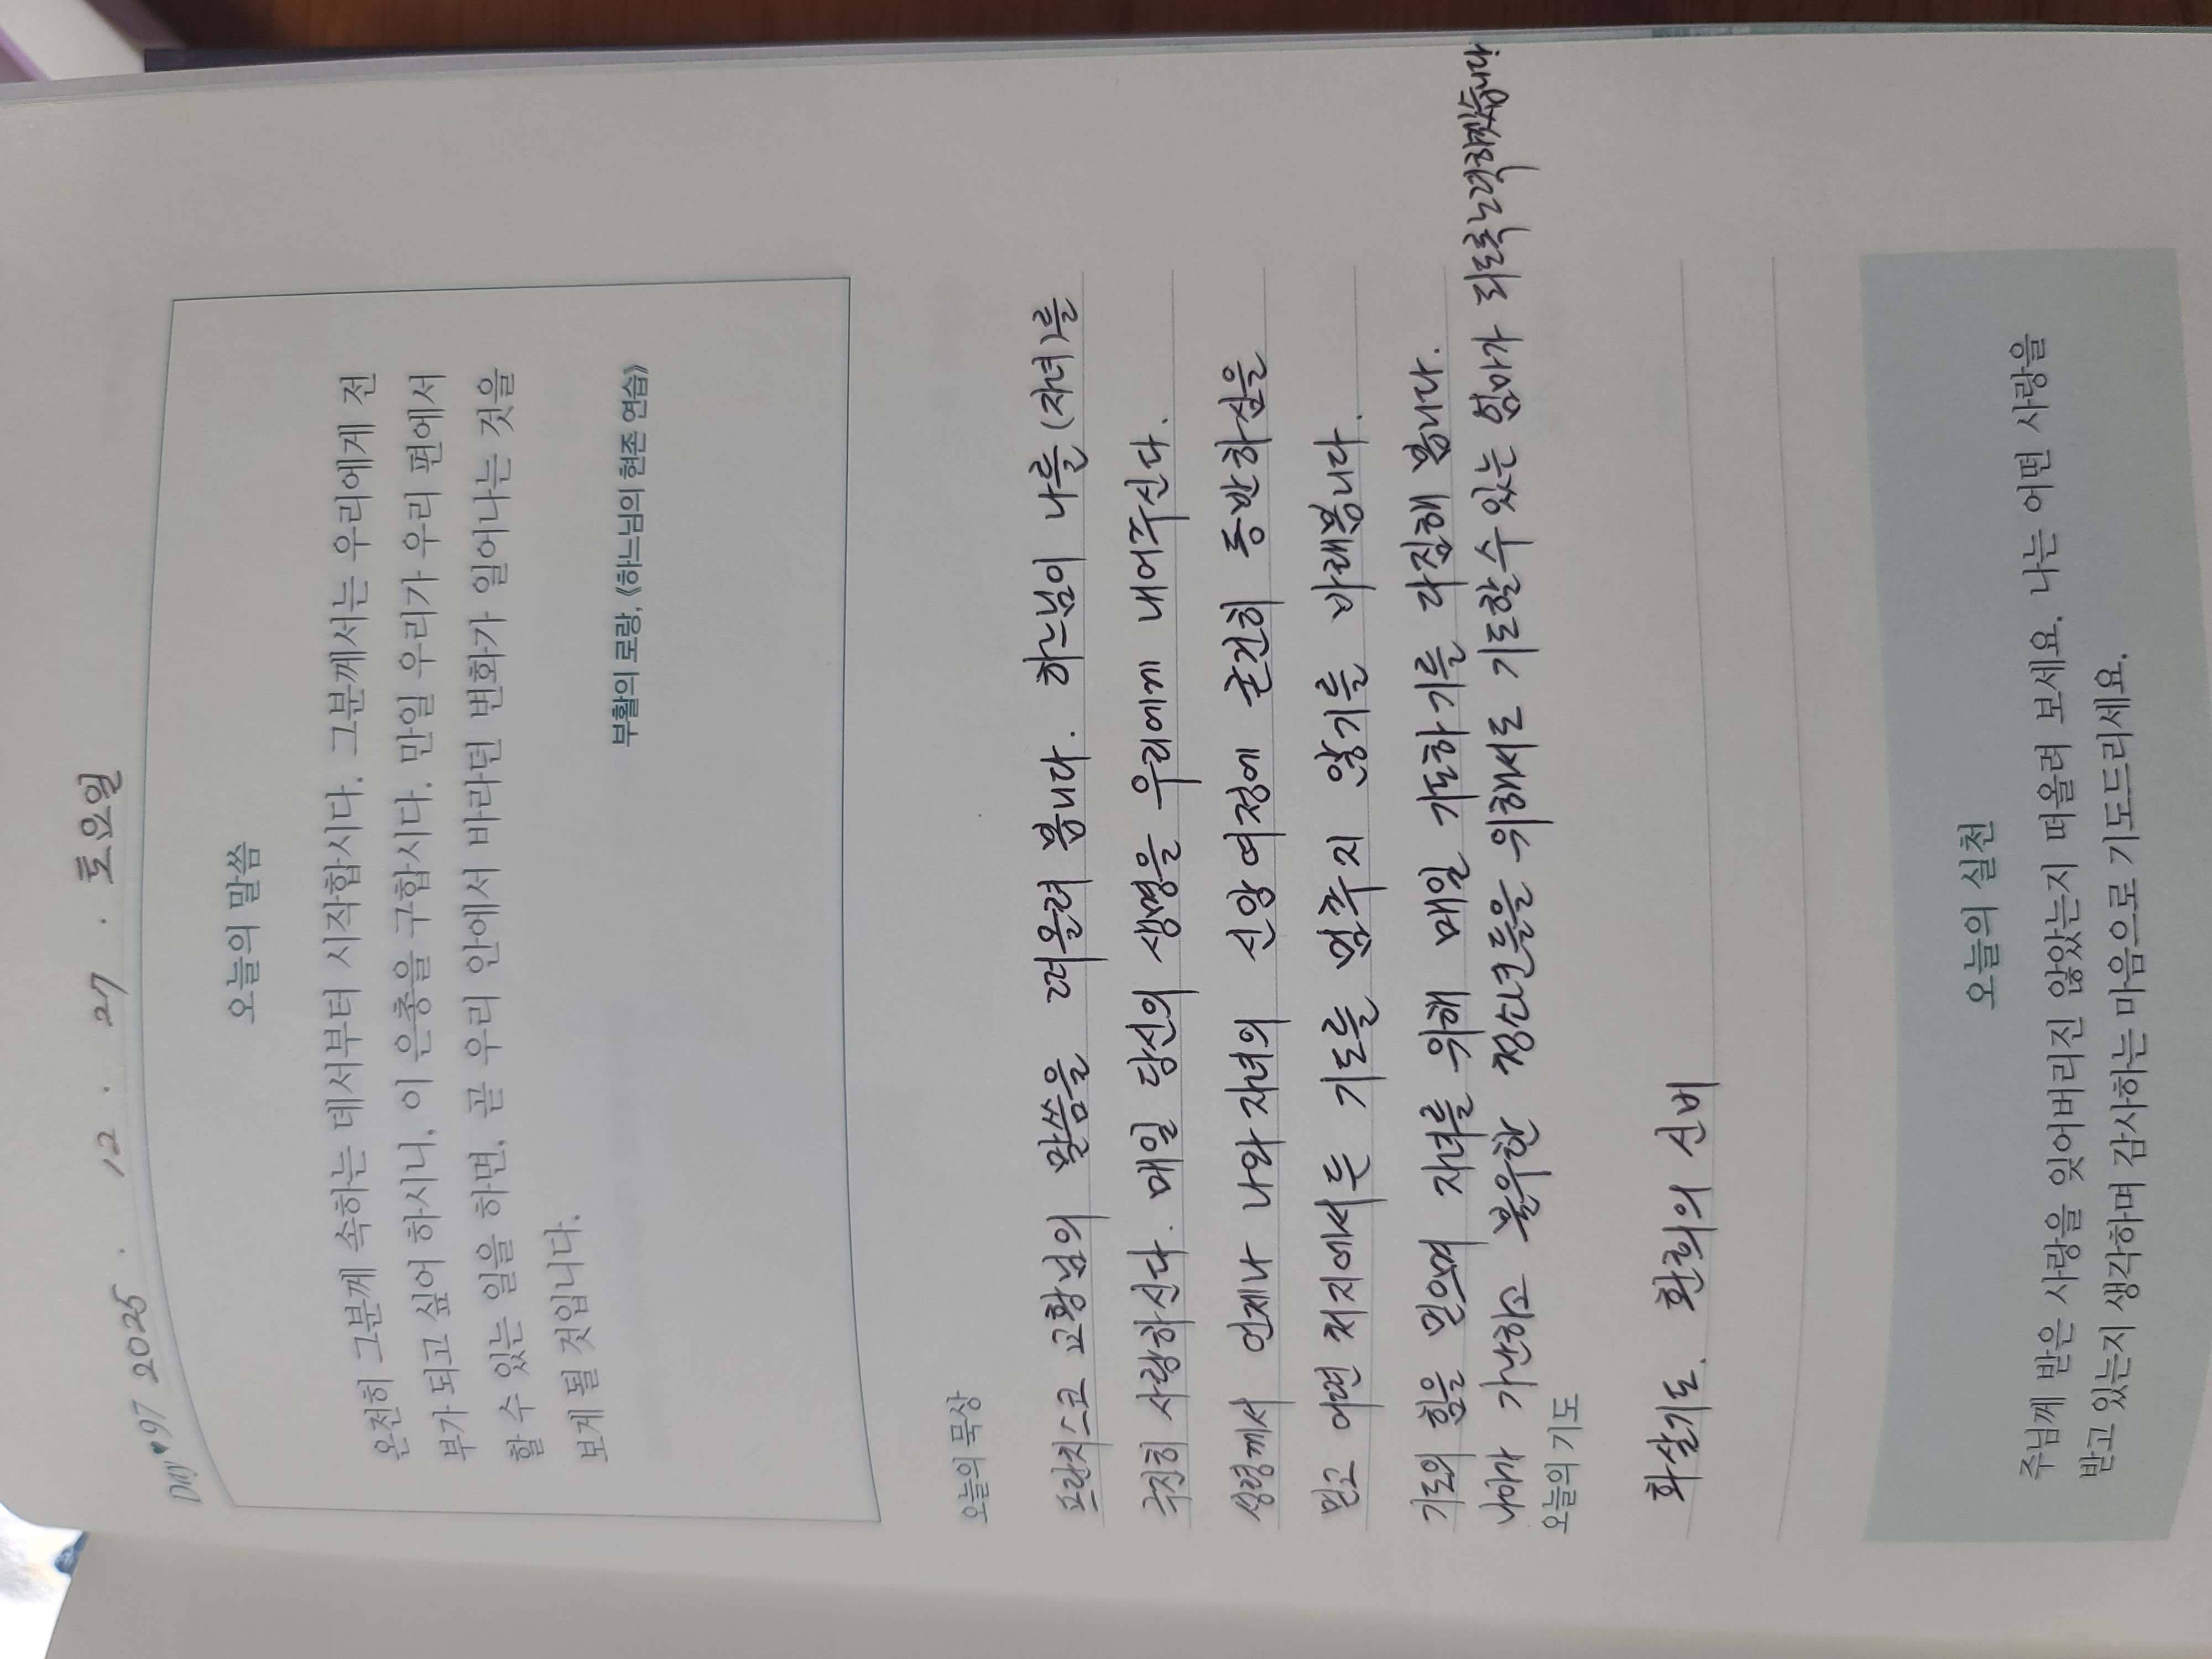 DAY♥97 2025. 12. 27. 토요일
오늘의 말씀
온전히 그분께 속하는 데서부터 시작합시다. 그분께서는 우리에게 전
부가 되고 싶어 하시니, 이 은총을 구합시다. 만일 우리가 우리 편에서
할 수 있는 일을 하면, 곧 우리 안에서 바라던 변화가 일어나는 것을
보게 될 것입니다.
부활의 로랑, 《하느님의 현존 연습》
오늘의 묵상
프란치스코 교황님의 말씀을 떠올려 봅니다. 하느님이 나를 (자녀)를
극진히 사랑하신다. 매일 당신의 생명을 우리에게 내어주신다.
성령께서 언제나 나와 자녀의 신앙여정에 굳건히 동반하심을
믿고 어떤 처지에서든 기도를 멈추지 않기를 바래봅니다.
기도의 힘을 믿으며 자녀를 위해 매일 기도하기를 다짐해 봅니다.
나아가 가난하고 불우한 청소년들을 위해서도 기도할 수 있는 엄마가 되도록 노력하겠습니다.
오늘의 기도
화살기도. 환희의 신비
오늘의 실천
주님께 받은 사랑을 잊어버리진 않았는지 떠올려 보세요. 나는 어떤 사랑을
받고 있는지 생각하며 감사하는 마음으로 기도드리세요.